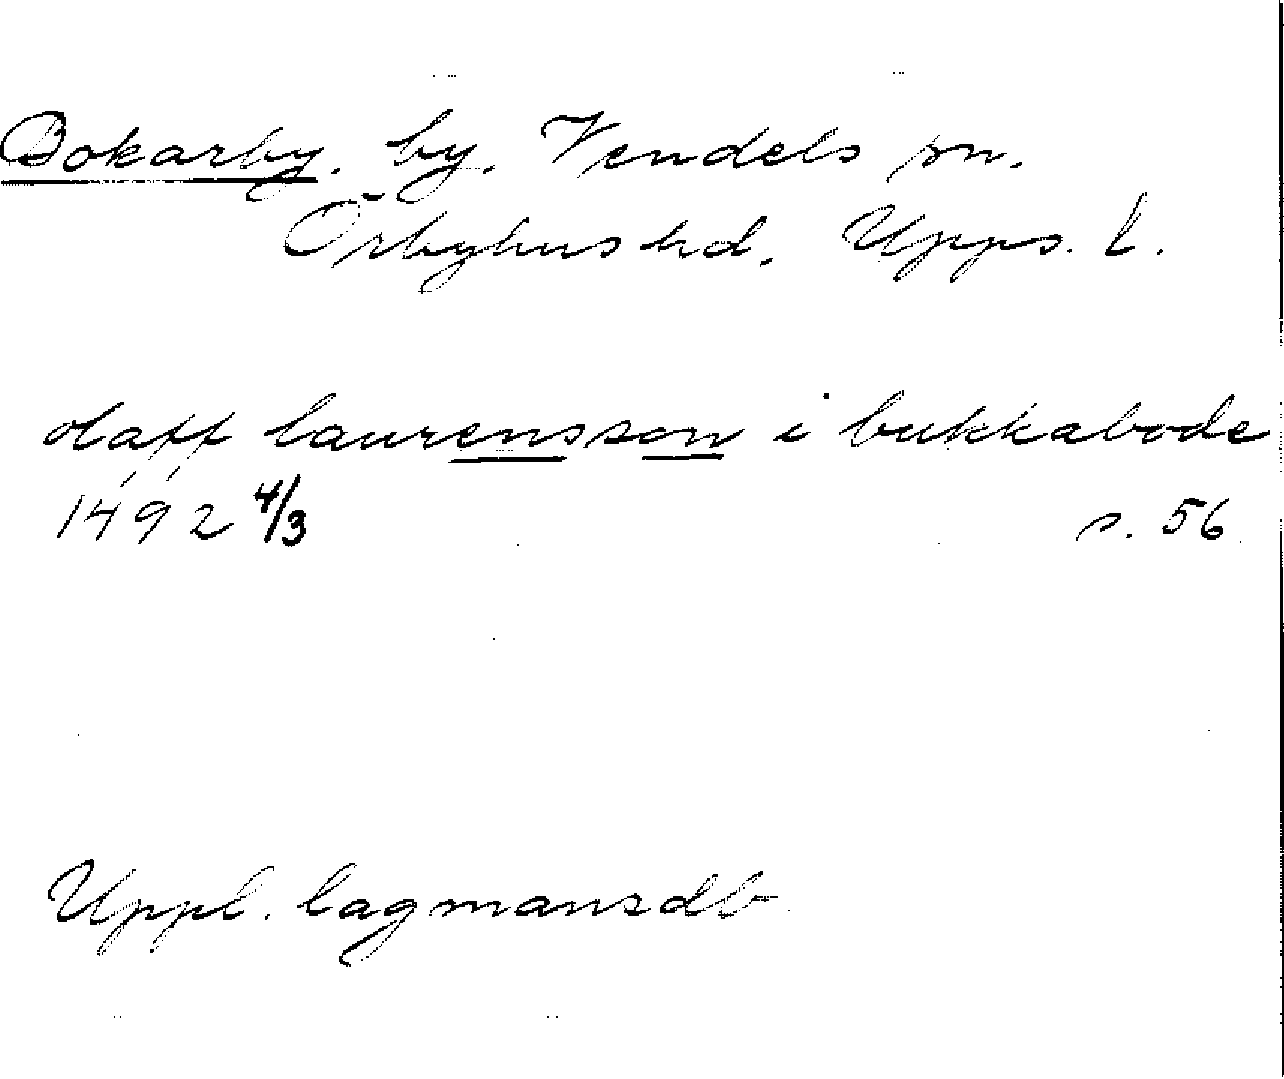 Bokarby. by. Vendels sn.
Örbyhus hd. Upps. l.
olaff laurensson i bukkabode
1492 4/3 s. 56
Uppl. lagmansdb